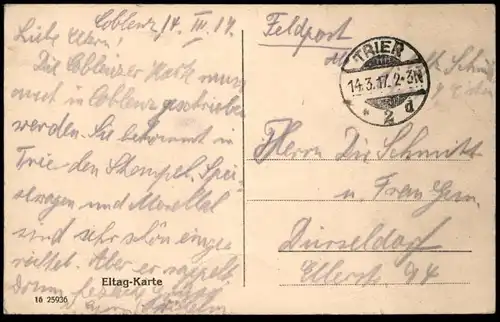 Coblenz, 14. III. 17.
Liebe Eltern!
Die Coblenzer Karte muss
in Coblenz geschrieben
werden. Sie bekommt in
Trier den Stempel. Spei-
sewagen und Moseltal
sind sehr schön einge-
richtet. Aber er
Drum
Feldpost
TRIER
14.3.17.2-3N
* 2 d
Herrn Dir. Schmitt
u. Frau Gem.
Düsseldorf
Ellerstr. 94
Eltag-Karte
16 25936